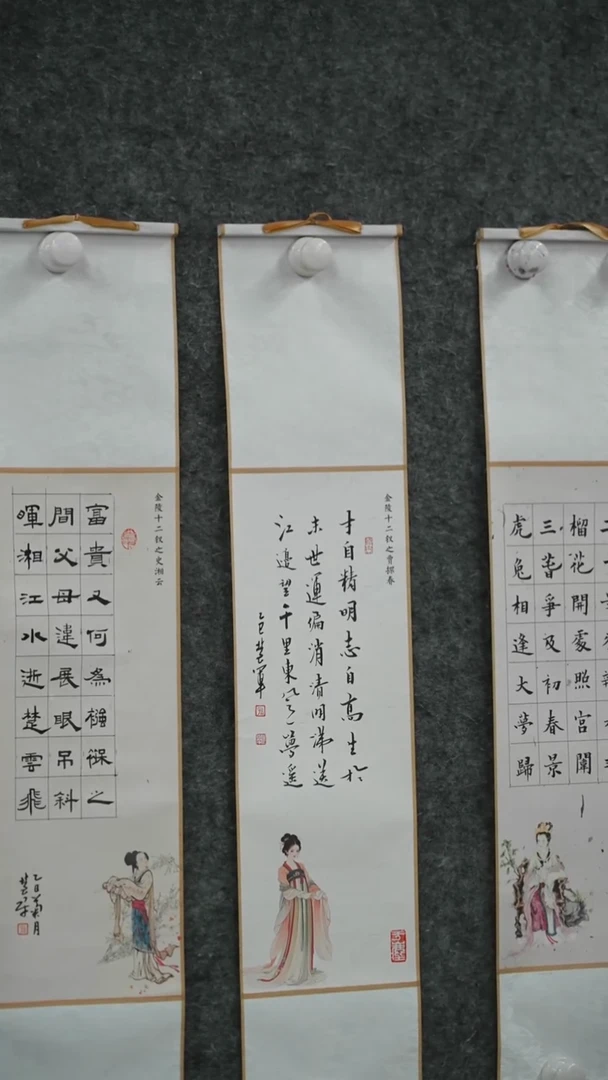 金陵十二钗之史湘云
富貴又何為襁褓之
間父母違展眼吊斜
暉湘江水逝楚雲飛
乙巳菊月
金陵十二钗之贾探春
才自精明志自高生於
末世運偏消清明涕送
江邊望千里東風一夢遙
榴花開處照宮闈
三春爭及初春景
虎兔相逢大夢歸